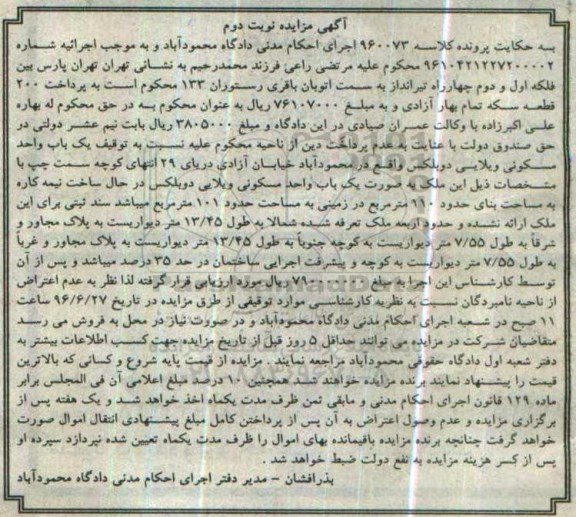 آگهی مزایده نوبت دوم
به حکایت پرونده کلاسه ۹۶۰۰۷۳ اجرای احکام مدنی دادگاه محمودآباد و به موجب اجرائیه شماره
۹۶۱۰۴۲۱۲۲۷۲۰۰۰۰۲ محکوم علیه مرتضی راعی فرزند محمدرحیم به نشانی تهران تهران پارس بین
فلکه اول و دوم چهارراه تیرانداز به سمت اتوبان باقری رستوران ۱۳۳ محکوم است به پرداخت ۲۰۰
قطعه سکه تمام بهار آزادی و به مبلغ ۷۶۱۰۷۰۰۰ ریال به عنوان محکوم به در حق محکوم له بهاره
علی اکبرزاده با وکالت عمران صیادی در این دادگاه و مبلغ ۳۸۰۵۰۰۰ ریال بابت نیم عشر دولتی در
حق صندوق دولت با عنایت به عدم پرداخت دین از ناحیه محکوم علیه نسبت به توقیف یک باب واحد
مسکونی ویلایی دوبلکس واقع در محمودآباد خیابان آزادی دریای ۲۹ انتهای کوچه سمت چپ با
مشخصات ذیل این ملک به صورت یک باب واحد مسکونی ویلایی دوبلکس در حال ساخت نیمه کاره
به مساحت بنای حدود ۱۱۰ مترمربع در زمینی به مساحت حدود ۱۰۱ مترمربع میباشد سند ثبتی برای این
ملک ارائه نشده و حدود اربعه ملک تعرفه شده شمالا به طول ۱۳/۴۵ متر دیواریست به پلاک مجاور و
شرقاً به طول ۷/۵۵ متر دیواریست به کوچه جنوباً به طول ۱۳/۴۵ متر دیواریست به پلاک مجاور و غرباً
به طول ۷/۵۵ متر دیواریست به کوچه و پیشرفت اجرایی ساختمان در حد ۳۵ درصد میباشد و پس از آن
توسط کارشناس این اجرا به مبلغ ریال مورد ارزیابی قرار گرفته لذا نظر به عدم اعتراض
از ناحیه نامبردگان نسبت به نظریه کارشناسی موارد توقیفی از طرق مزایده در تاریخ ۹۶/۶/۲۷ ساعت
۱۱ صبح در شعبه اجرای احکام مدنی دادگاه محمودآباد و در صورت نیاز در محل به فروش می رسد
متقاضیان شرکت در مزایده می توانند حداقل ۵ روز قبل از تاریخ مزایده جهت کسب اطلاعات بیشتر به
دفتر شعبه اول دادگاه حقوقی محمودآباد مراجعه نمایند . مزایده از قیمت پایه شروع و کسانی که بالاترین
قیمت را پیشنهاد نمایند برنده مزایده خواهند شد همچنین ۱۰ درصد مبلغ اعلامی آن فی المجلس برابر
ماده ۱۲۹ قانون اجرای احکام مدنی و مابقی ثمن ظرف مدت یکماه اخذ خواهد شد و یک هفته پس از
برگزاری مزایده و عدم وصول اعتراض به آن پس از پرداختن کامل مبلغ پیشنهادی انتقال اموال صورت
خواهد گرفت چنانچه برنده مزایده باقیمانده بهای اموال را ظرف مدت یکماه تعیین شده نپردازد سپرده او
پس از کسر هزینه مزایده به نفع دولت ضبط خواهد شد .
بذرافشان - مدیر دفتر اجرای احکام مدنی دادگاه محمودآباد